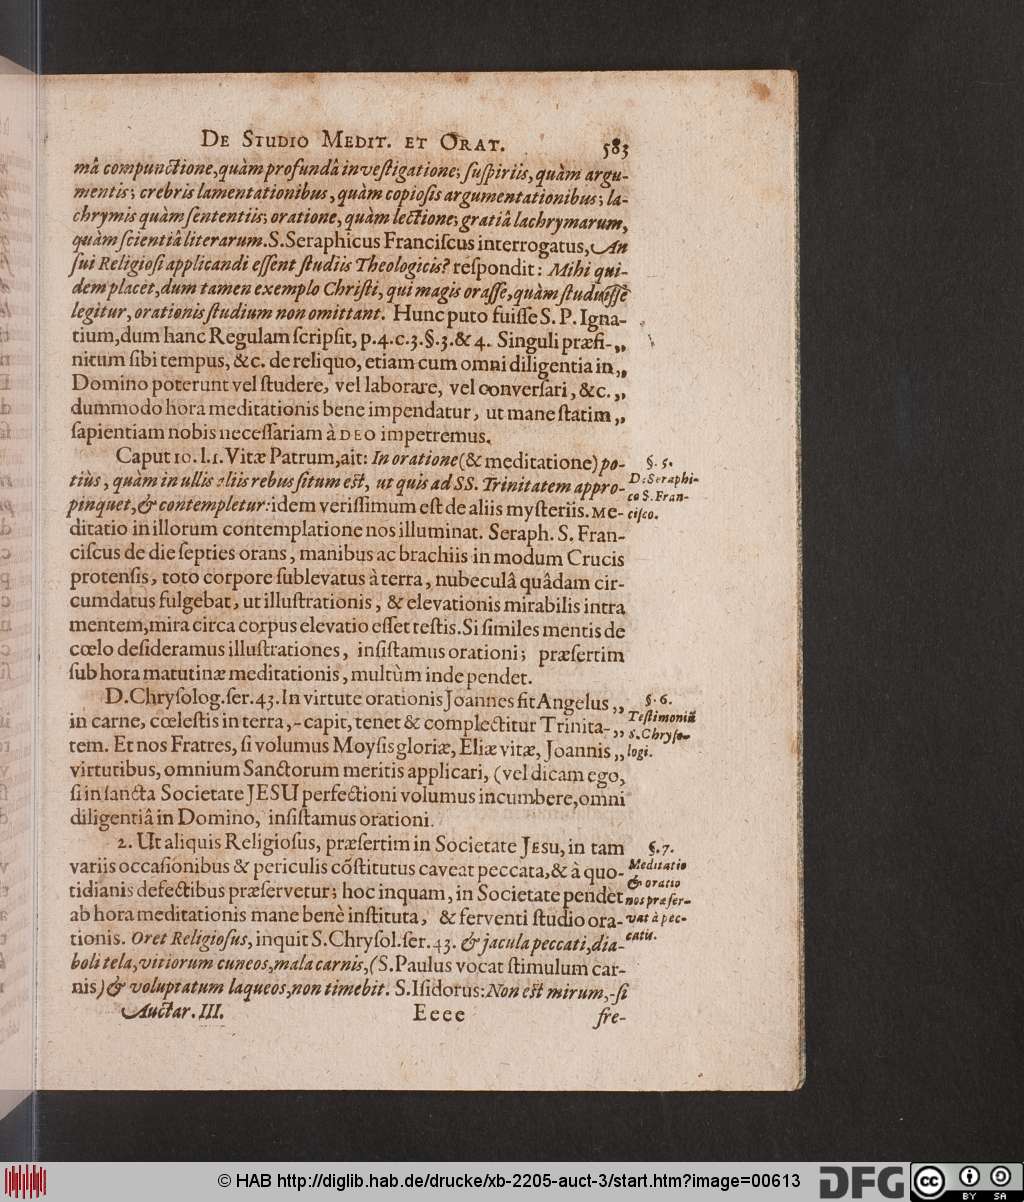 De Studio Medit. et Orat. 583
mâ compunctione, quàm profundâ investigatione; suspiriis, quàm argu-
mentis; crebris lamentationibus, quàm copiosis argumentationibus; la-
chrymis quàm sententiis; oratione, quàm lectione; gratiâ lachrymarum,
quàm scientiâ literarum. S. Seraphicus Franciscus interrogatus, An
sui Religiosi applicandi essent studiis Theologicis? respondit: Mihi qui-
dem placet, dum tamen exemplo Christi, qui magis orasse, quàm studuisse
legitur, orationis studium non omittant. Hunc puto fuisse S. P. Igna-
tium, dum hanc Regulam scripsit, p. 4. c. 3. §. 3. & 4. Singuli præfi- „
nitum sibi tempus, &c. de reliquo, etiam cum omni diligentia in „
Domino poterunt vel studere, vel laborare, vel conversari, &c. „
dummodo hora meditationis bene impendatur, ut mane statim „
sapientiam nobis necessariam à DEO impetremus.
Caput 10. l. 1. Vitæ Patrum, ait: In oratione (& meditatione) po-
tiùs, quàm in ullis aliis rebus situm est, ut quis ad SS. Trinitatem appro-
pinquet, & contempletur: idem verissimum est de aliis mysteriis. Me-
ditatio in illorum contemplatione nos illuminat. Seraph. S. Fran-
ciscus de die septies orans, manibus ac brachiis in modum Crucis
protensis, toto corpore sublevatus à terra, nubeculâ quâdam cir-
cumdatus fulgebat, ut illustrationis, & elevationis mirabilis intra
mentem, mira circa corpus elevatio esset testis. Si similes mentis de
cœlo desideramus illustrationes, insistamus orationi; præsertim
sub hora matutinæ meditationis, multùm inde pendet.
§. 5.
D. Seraphi-
co S. Fran-
cisco.
D. Chrysolog. ser. 43. In virtute orationis Joannes fit Angelus „
in carne, cœlestis in terra, - capit, tenet & complectitur Trinita- „
tem. Et nos Fratres, si volumus Moysis gloriæ, Eliæ vitæ, Joannis „
virtutibus, omnium Sanctorum meritis applicari, (vel dicam ego,
si in sancta Societate JESU perfectioni volumus incumbere, omni
diligentiâ in Domino, insistamus orationi.
§. 6.
Testimoniũ
S. Chryso-
logi.
2. Ut aliquis Religiosus, præsertim in Societate Jesu, in tam
variis occasionibus & periculis cõstitutus caveat peccata, & à quo-
tidianis defectibus præservetur; hoc inquam, in Societate pendet
ab hora meditationis mane benè instituta, & ferventi studio ora-
tionis. Oret Religiosus, inquit S. Chrysol. ser. 43. & jacula peccati, dia-
boli tela, vitiorum cuneos, mala carnis, (S. Paulus vocat stimulum car-
nis) & voluptatum laqueos, non timebit. S. Isidorus: Non est mirum, - si
§. 7.
Meditatio
& oratio
nos præser-
vat à pec-
catis.
Auctar. III. Eeee fre-
© HAB http://diglib.hab.de/drucke/xb-2205-auct-3/start.htm?image=00613
DFG
cc
BY SA